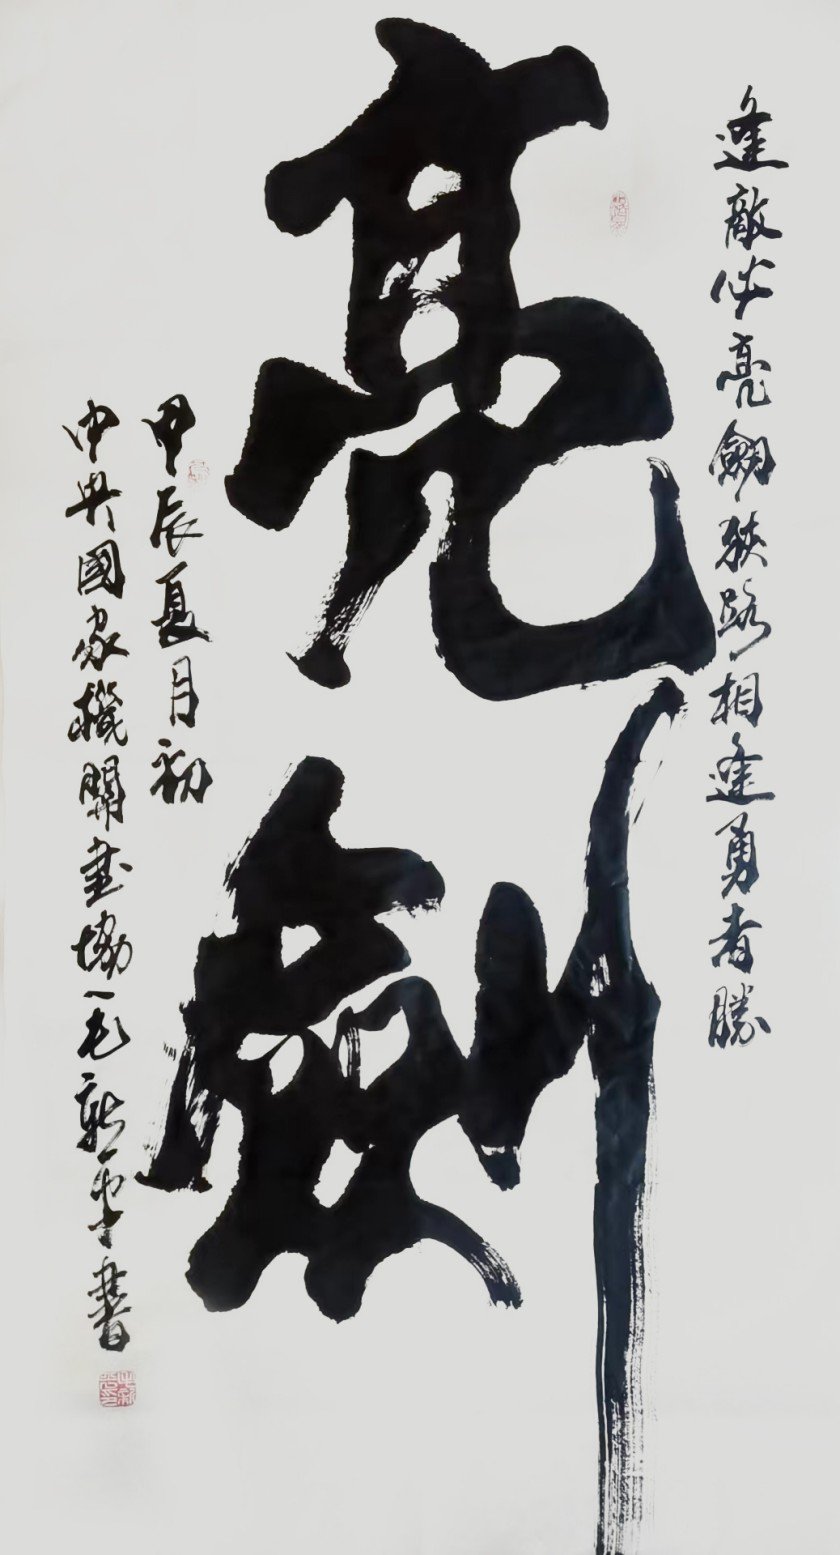 逢敵必亮劍狹路相逢勇者勝
亮劍
甲辰夏月初
中央國家機關書協一毛新平書